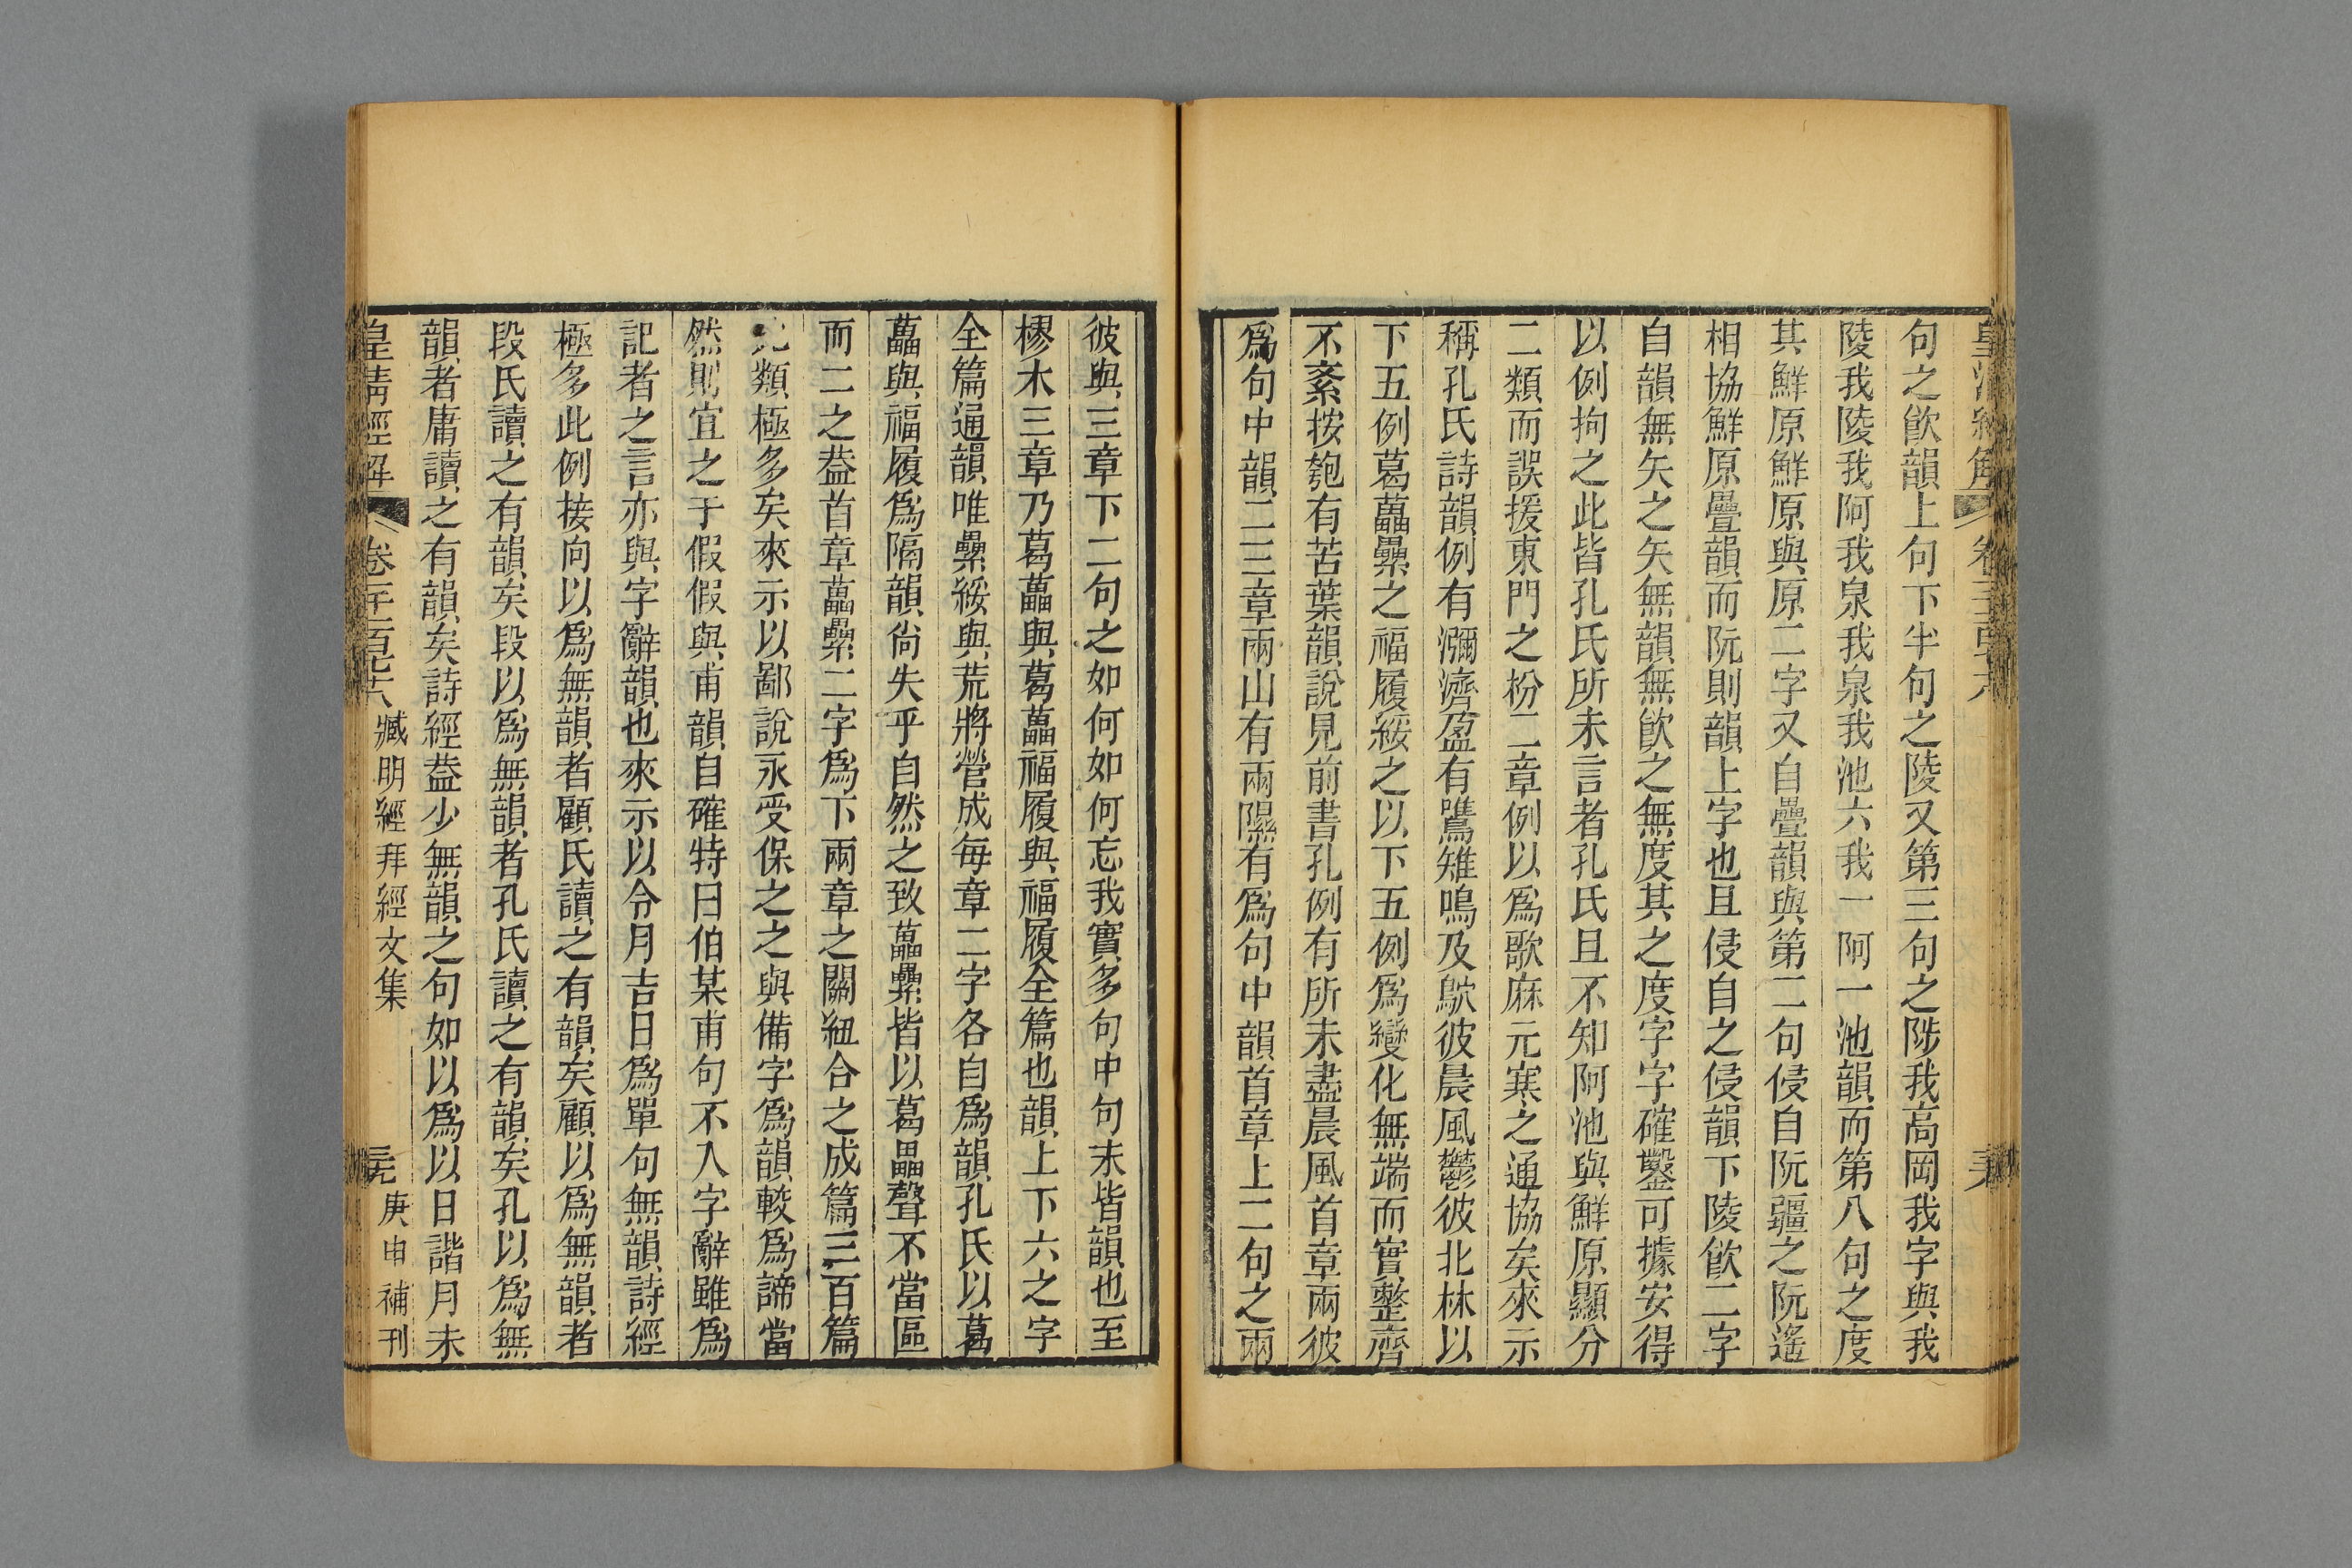 句之飮韻上句下半句之陵又第三句之陟我高岡我字與我
陵我陵我阿我泉我泉我池六我一阿一池韻而第八句之度
其鮮原鮮原與原二字又自疊韻與第二句侵自阮疆之阮遙
相協鮮原疊韻而阮則韻上字也且侵自之侵韻下陵飮二字
自韻無矢之矢無韻無飮之無度其之度字字確鑿可據安得
以例拘之此皆孔氏所未言者孔氏且不知阿池與鮮原顯分
二類而誤援東門之枌二章例以爲歌麻元寒之通協矣來示
稱孔氏詩韻例有瀰濟盈有鷕雉鳴及鴥彼晨風鬱彼北林以
下五例葛藟纍之福履綏之以下五例爲變化無端而實整齊
不紊按匏有苦葉韻說見前書孔例有所未盡晨風首章兩彼
爲句中韻二三章兩山有兩隰有爲句中韻首章上二句之兩
彼與三章下二句之如何如何忘我實多句中句末皆韻也至
樛木三章乃葛藟與葛藟福履與福履全篇也韻上下六之字
全篇通韻唯纍綏與荒將營成每章二字各自爲韻孔氏以葛
藟與福履爲隔韻尙失乎自然之致藟纍皆以葛畾聲不當區
而二之葢首章藟纍二字爲下兩章之關紐合之成篇三百篇
類極多矣來示以鄙說永受保之之與備字爲韻較爲諦當
然則宜之于假假與甫韻自確特曰伯某甫句不入字辭雖爲
記者之言亦與字辭韻也來示以令月吉日爲單句無韻詩經
極多此例接向以爲無韻者顧氏讀之有韻矣顧以爲無韻者
段氏讀之有韻矣段以爲無韻者孔氏讀之有韻矣孔以爲無
韻者庸讀之有韻矣詩經葢少無韻之句如以爲以日諧月未
皇清經解 卷 臧明經拜經文集 庚申補刊